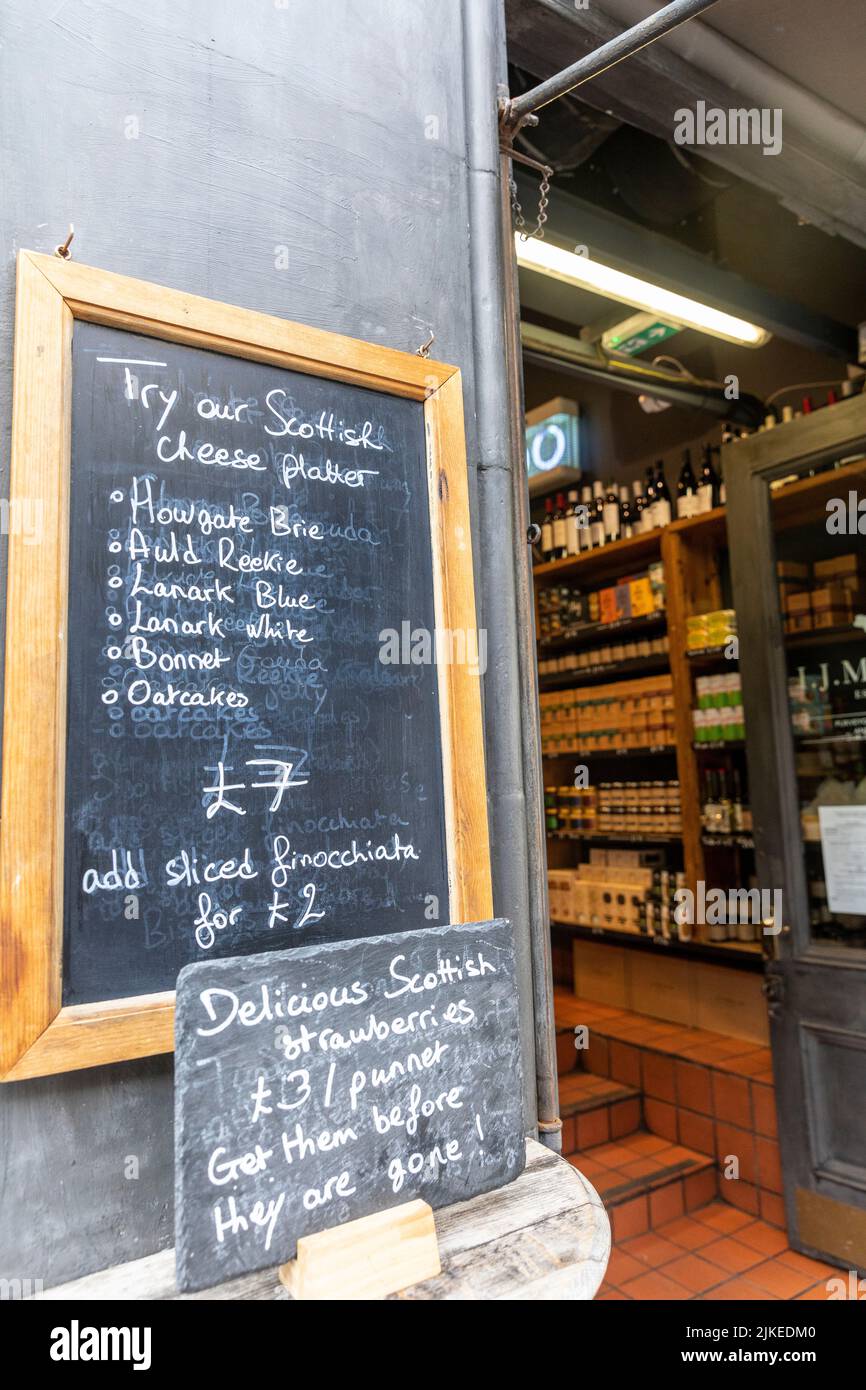 Try our Scottish
cheese platter
Howgate Brie
Auld Reekie
Lanark Blue
Lanark White
Bonnet
Oatcakes
£7
add sliced finocchiata
for £2
Delicious Scottish
strawberries
£3/punnet
Get them before
they are gone!
I.J.M
alamy
Image ID: 2JKEDM0
www.alamy.com